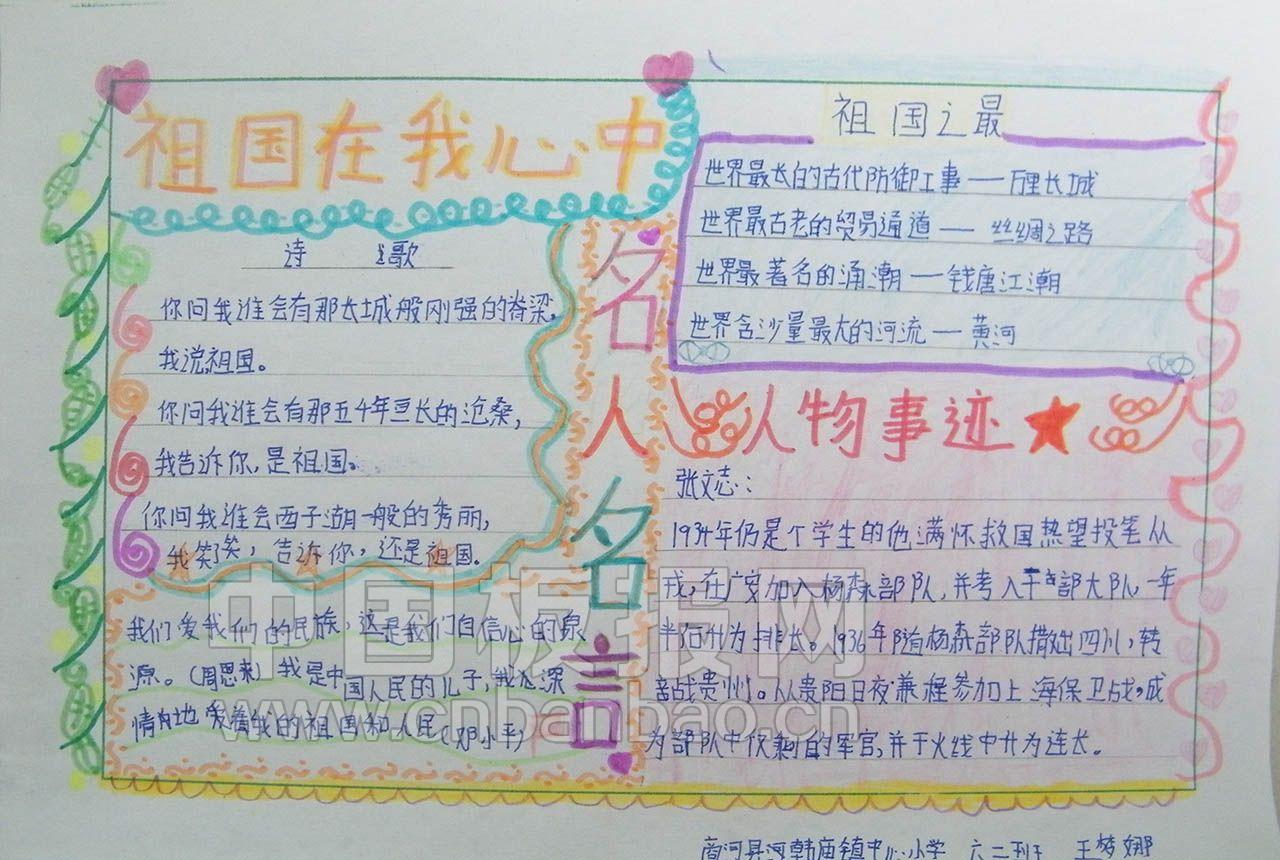 祖国在我心中
诗 歌
你问我谁会有那长城般刚强的脊梁,
我说祖国。
你问我谁会有那五千年亘长的沧桑,
我告诉你,是祖国。
你问我谁会西子湖一般的秀丽,
我笑笑,告诉你,还是祖国。
名人名言
我们爱我们的民族,这是我们自信心的泉
源。(周恩来)我是中国人民的儿子,我深
情地爱着我的祖国和人民(邓小平)
祖国之最
世界最长的古代防御工事——万里长城
世界最古老的贸易通道——丝绸之路
世界最著名的涌潮——钱唐江潮
世界含沙量最大的河流——黄河
人物事迹
张文志:
1934年仍是个学生的他满怀救国热望投笔从
戎,在广安加入杨森部队,并考入干部大队,一年
半后升为排长。1936年随杨森部队撤出四川,转
战贵州。从贵阳日夜兼程参加上海保卫战,成
为部队中仅剩的军官,并于火线中升为连长。
商河县河韩庙镇中心小学 六二班 王梦娜
中国板报网
www.cnbanbao.cn